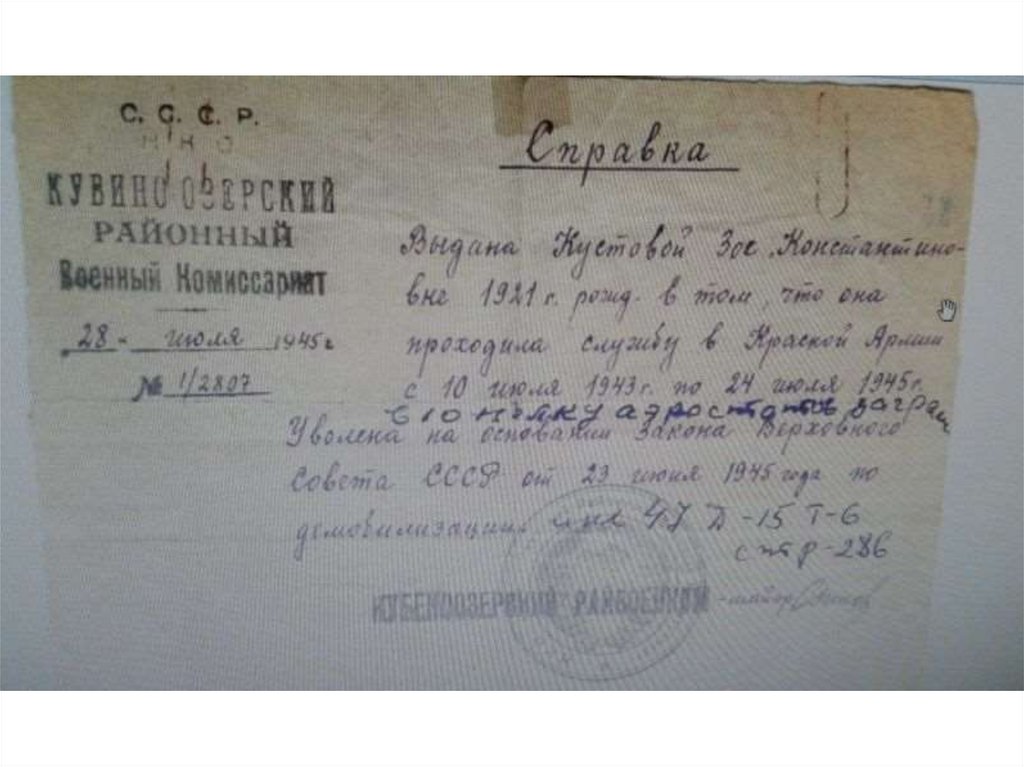 С. С. С. Р.
Н К О
КУБИНО ОЗЕРСКИЙ
РАЙОННЫЙ
Военный Комиссариат
28 - июля 1945 г
№ 1/2807
Справка
Выдана Кустовой Зое Константино-
вне 1921 г. рожд. в том, что она
проходила службу в Краской Армии
с 10 июля 1943 г. по 24 июля 1945 г.
в 10 полку аэростатов заграж
Уволена на основании Закона Верховного
Совета СССР от 23 июня 1945 года по
демобилизации 47 Д-15 Т-6
стр-286
КУБЕНООЗЕРСКИЙ РАЙВОЕНКОМ - майор